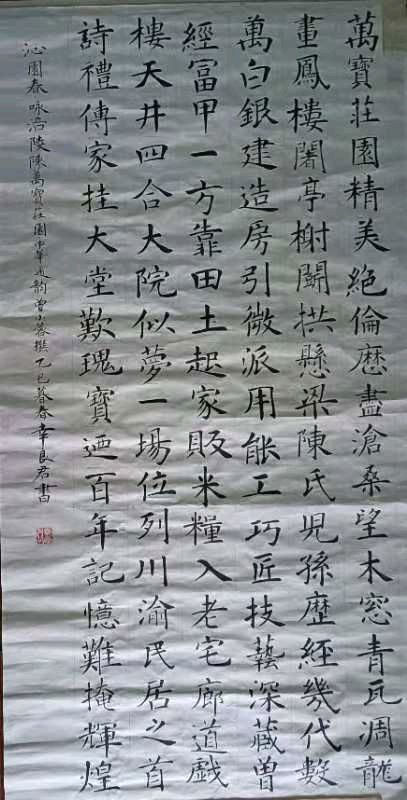 萬寶莊園精美絕倫歷盡滄桑望木窓青瓦凋龍
畫鳳樓閣亭榭鬭拱懸梁陳氏児孫歷經幾代數
萬白銀建造房引微派用能工巧匠技藝深藏曾
經富甲一方靠田土起家販米糧入老宅廊道戲
樓天井四合大院似夢一場位列川渝民居之首
詩禮傳家挂大堂歎瑰寶迺百年記憶難掩輝煌
沁園春咏涪陵陳萬寳莊園中華通韵曾小蓉撰乙巳暮春幸良君書